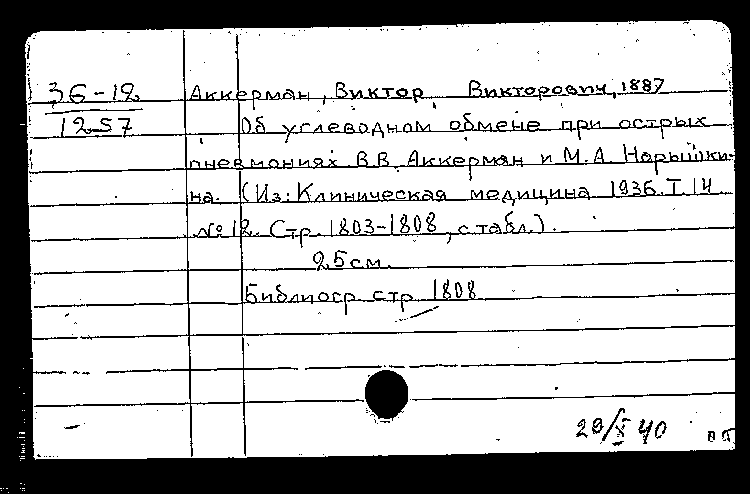 36-12
1257
Аккерман, Виктор Викторович, 1887
Об углеводном обмене при острых
пневмониях В.В. Аккерман и М.А. Нарышки-
на. (Из: Клиническая медицина 1936. Т 14
№12. Стр. 1803-1808, с табл.).
25 см.
Библиогр стр 1808
29/X 40